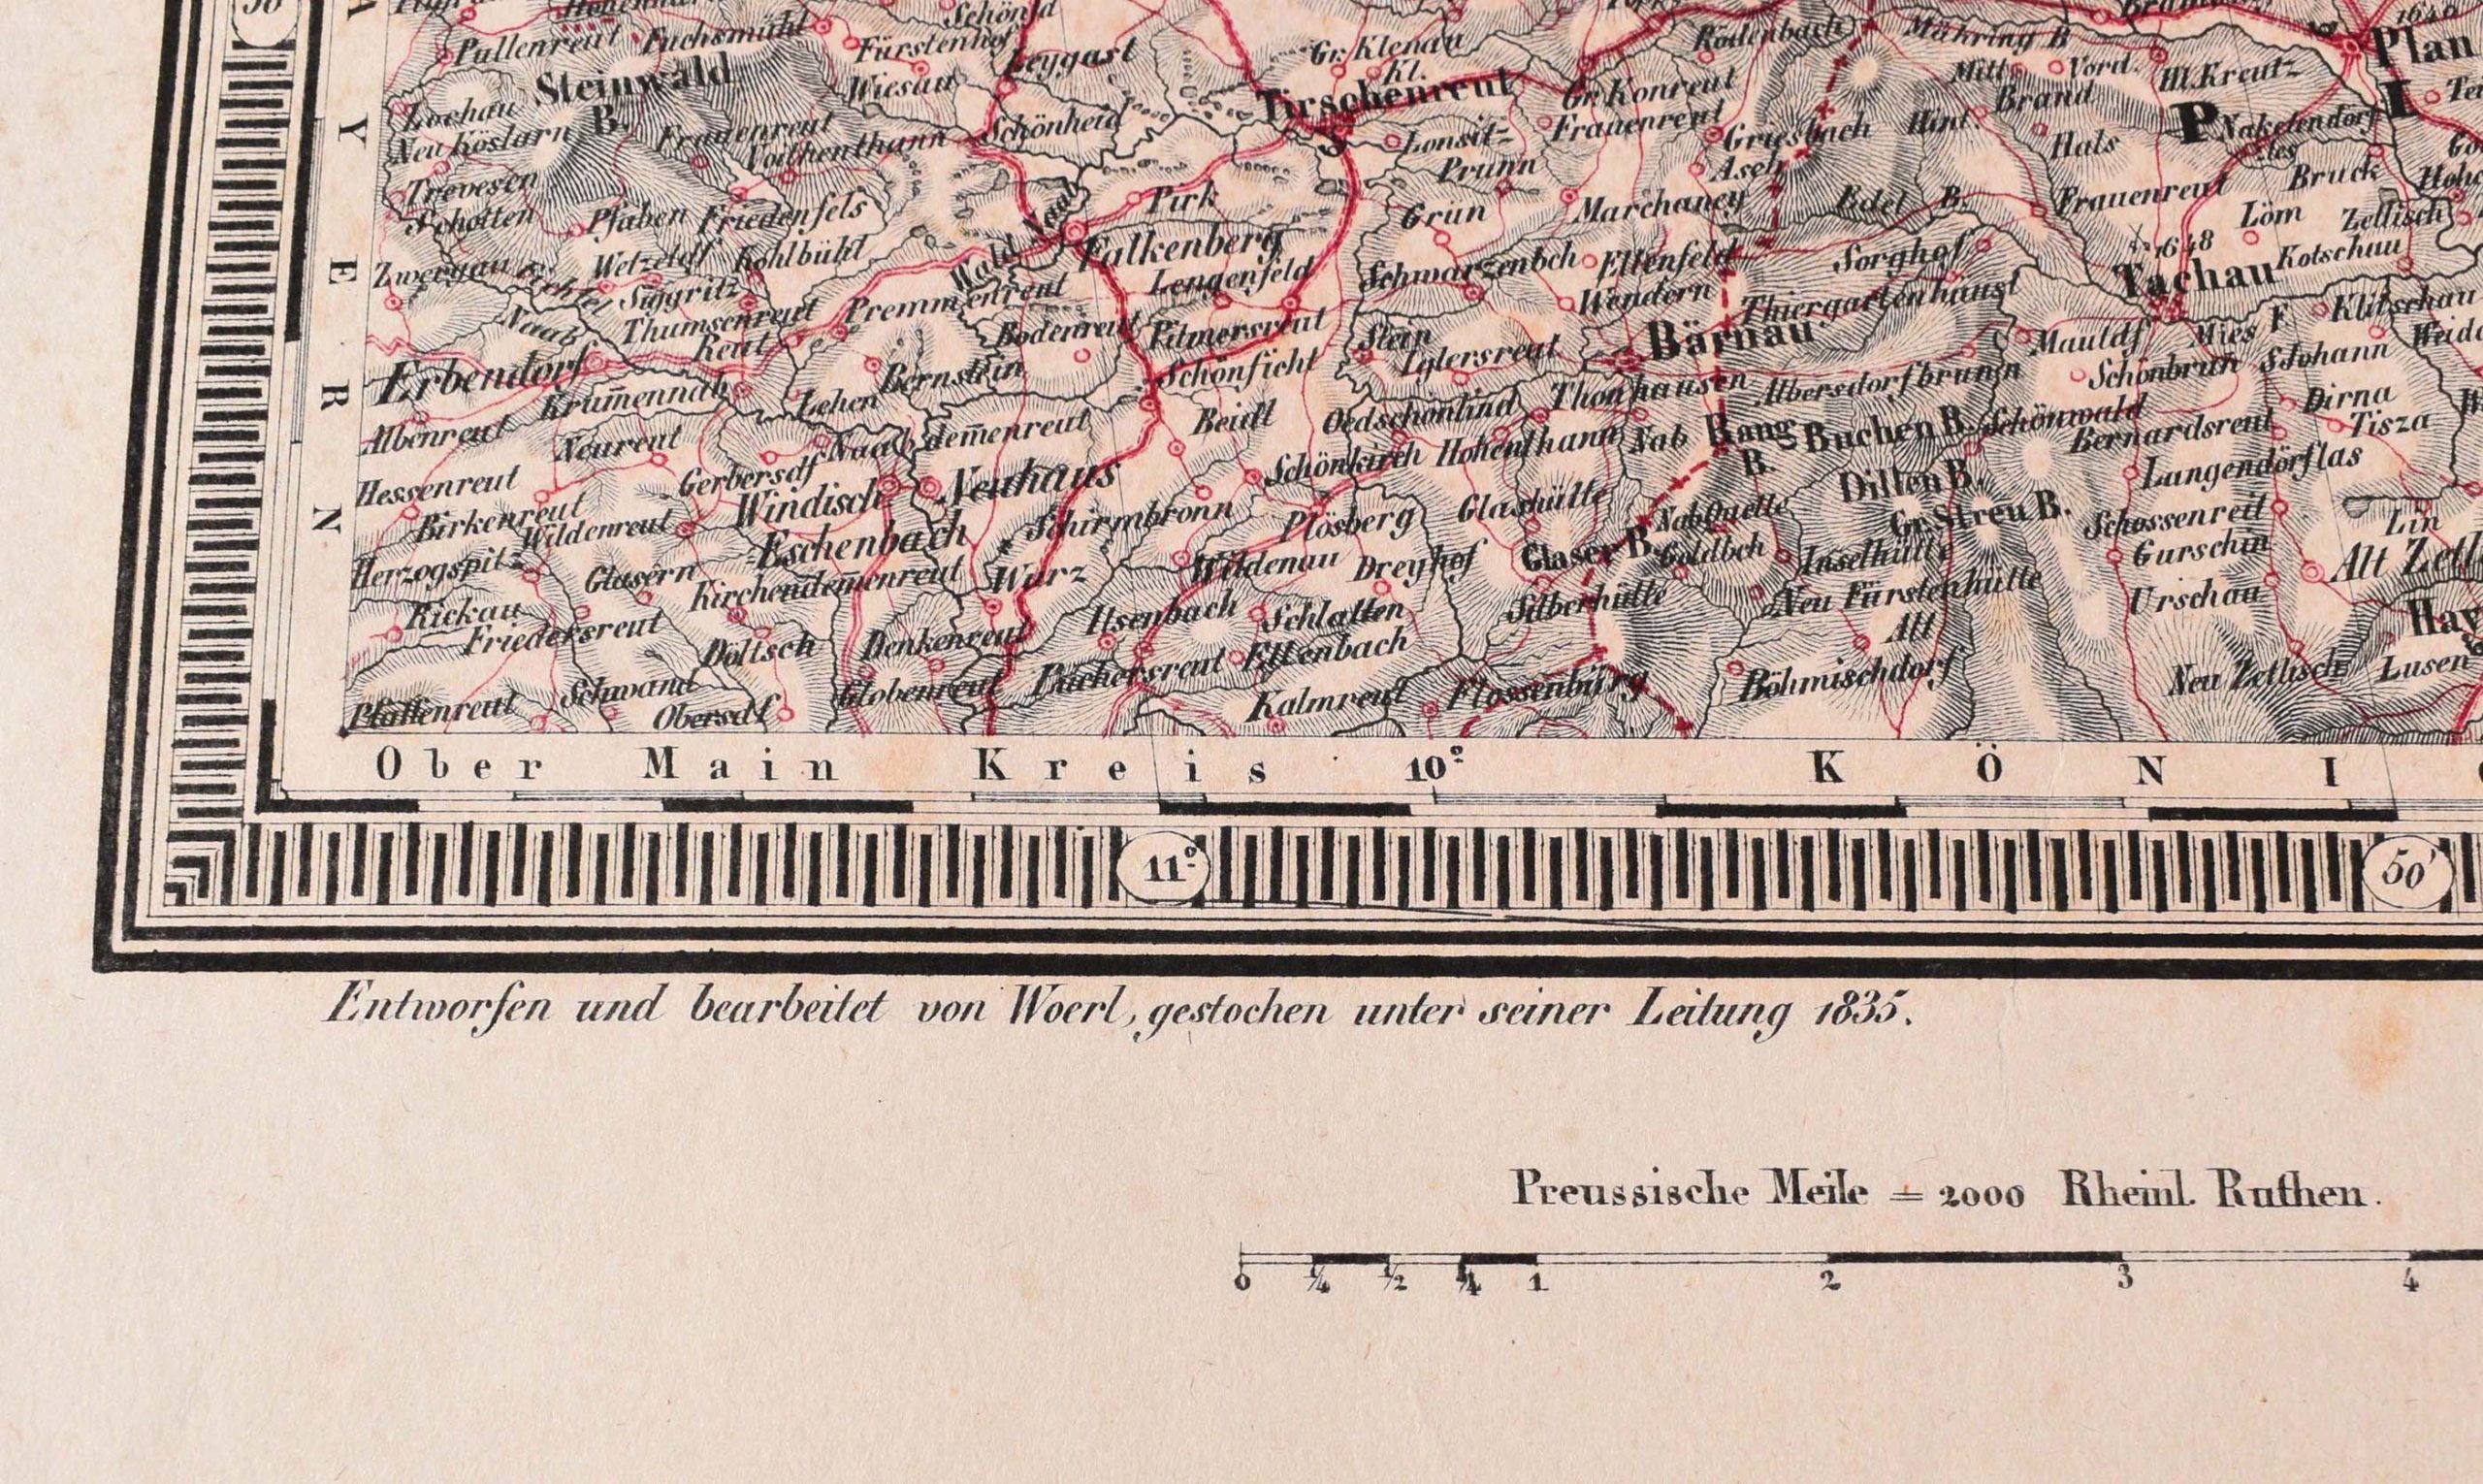 Schönfd
Pullenreut Fuchsmühl Fürstenhof Leygast Gr. Klenau Rodenbach Mähring B 1648
Kl. Plan
Steinwald Wiesau Tirschenreut Gr. Konreut Mitt. Vord. Hl. Kreutz
Lochau B. Schönheid Frauenreut Griesbach Hint. Brand P Nakelendorf L
Neu Köslarn Fradenreut Voithenthann Lonsitz Hals
Trevesen Prunn Asch Bruck
Schotten Pfaben Friedenfels Pirk Grün Marchaney Edel B. Frauenreut Löm Zetlisch
Zwergau Wetzeldf Kohlbühl Wald Naab Falkenberg Schwarzenbch Ellenfeld Sorghof 1648 Kotschau
Siggritz Premmenreut Lengenfeld Wendern Thiergartenhäusl Tachau
Naab Thumsenreut Bodenreut Pilmersreut Stein Bärnau Mauldf Mies F Klitschau
Erbendorf Reut Bernstein Schönficht Iglersreut Schönbrun S. Johann
Krum̄ennab Lehen Thonhausen Albersdorf brunn Dirna
Albenreut Neureut Naabdem̄enreut Beidl Oedschönlind Rang B. Buchen B. Schönwald Tisza
Hessenreut Gerbersdf Schönkirch Hohenthann Nab Bernardsreut
Windisch Eschenbach Neuhaus Dillen B. Langendörflas
Birkenreut Wildenreut Schirmbronn Plösberg Glashütte Nab Quelle Gr. Streu B. Schossenreit Lin
Herzogspitz Glasern Kirchendem̄enreut Wurz Wildenau Dreyhof Glaser B. Goldbch Inselhütte Gurschin Alt Zetl
Rickau Ilsenbach Schlatten Silberhütte Neu Fürstenhütte Urschau
Friedersreut Döltsch Denkenreut Ellenbach Alt Hay
Pfaffenreut Schwand Globenreut Püchersreut Flossenbürg Böhmischdorf Neu Zetlisch Lusen
Obersdf Kalmreut
Y E R N
Ober Main Kreis 10° K Ö N I
11° 50'
Entworfen und bearbeitet von Woerl, gestochen unter seiner Leitung 1835.
Preussische Meile = 2000 Rheinl. Ruthen.
0 ¼ ½ ¾ 1 2 3 4